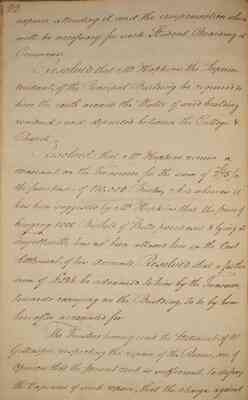 expence attending it and the compensation which
will be necessary for each Student Boarding in
Commons.
Resolved that Mr Hopkins the Superin-
tendant of the Principal Building be required to
have the earth around the Walls of said building
removed and deposited between the College &
Church.
Resolved, that Mr Hopkins receive a
warrant on the Treasurer for the sum of
the purchase of Bricks, & whereas it
has been suggested by Mr Hopkins that the price of
Bushels of
has not been allowed him in the last
Settlement of his Accounts. Resolved that a further
sum of be advanced to him by the Treasurer
towards carrying on the Building, to be by him
hereafter accounted for.
The Trustees having read the Statement of Mr
respecting the repair of the Rooms, are of
opinion that the present rent is sufficient to defray
the Expences of such repair, that the charge against